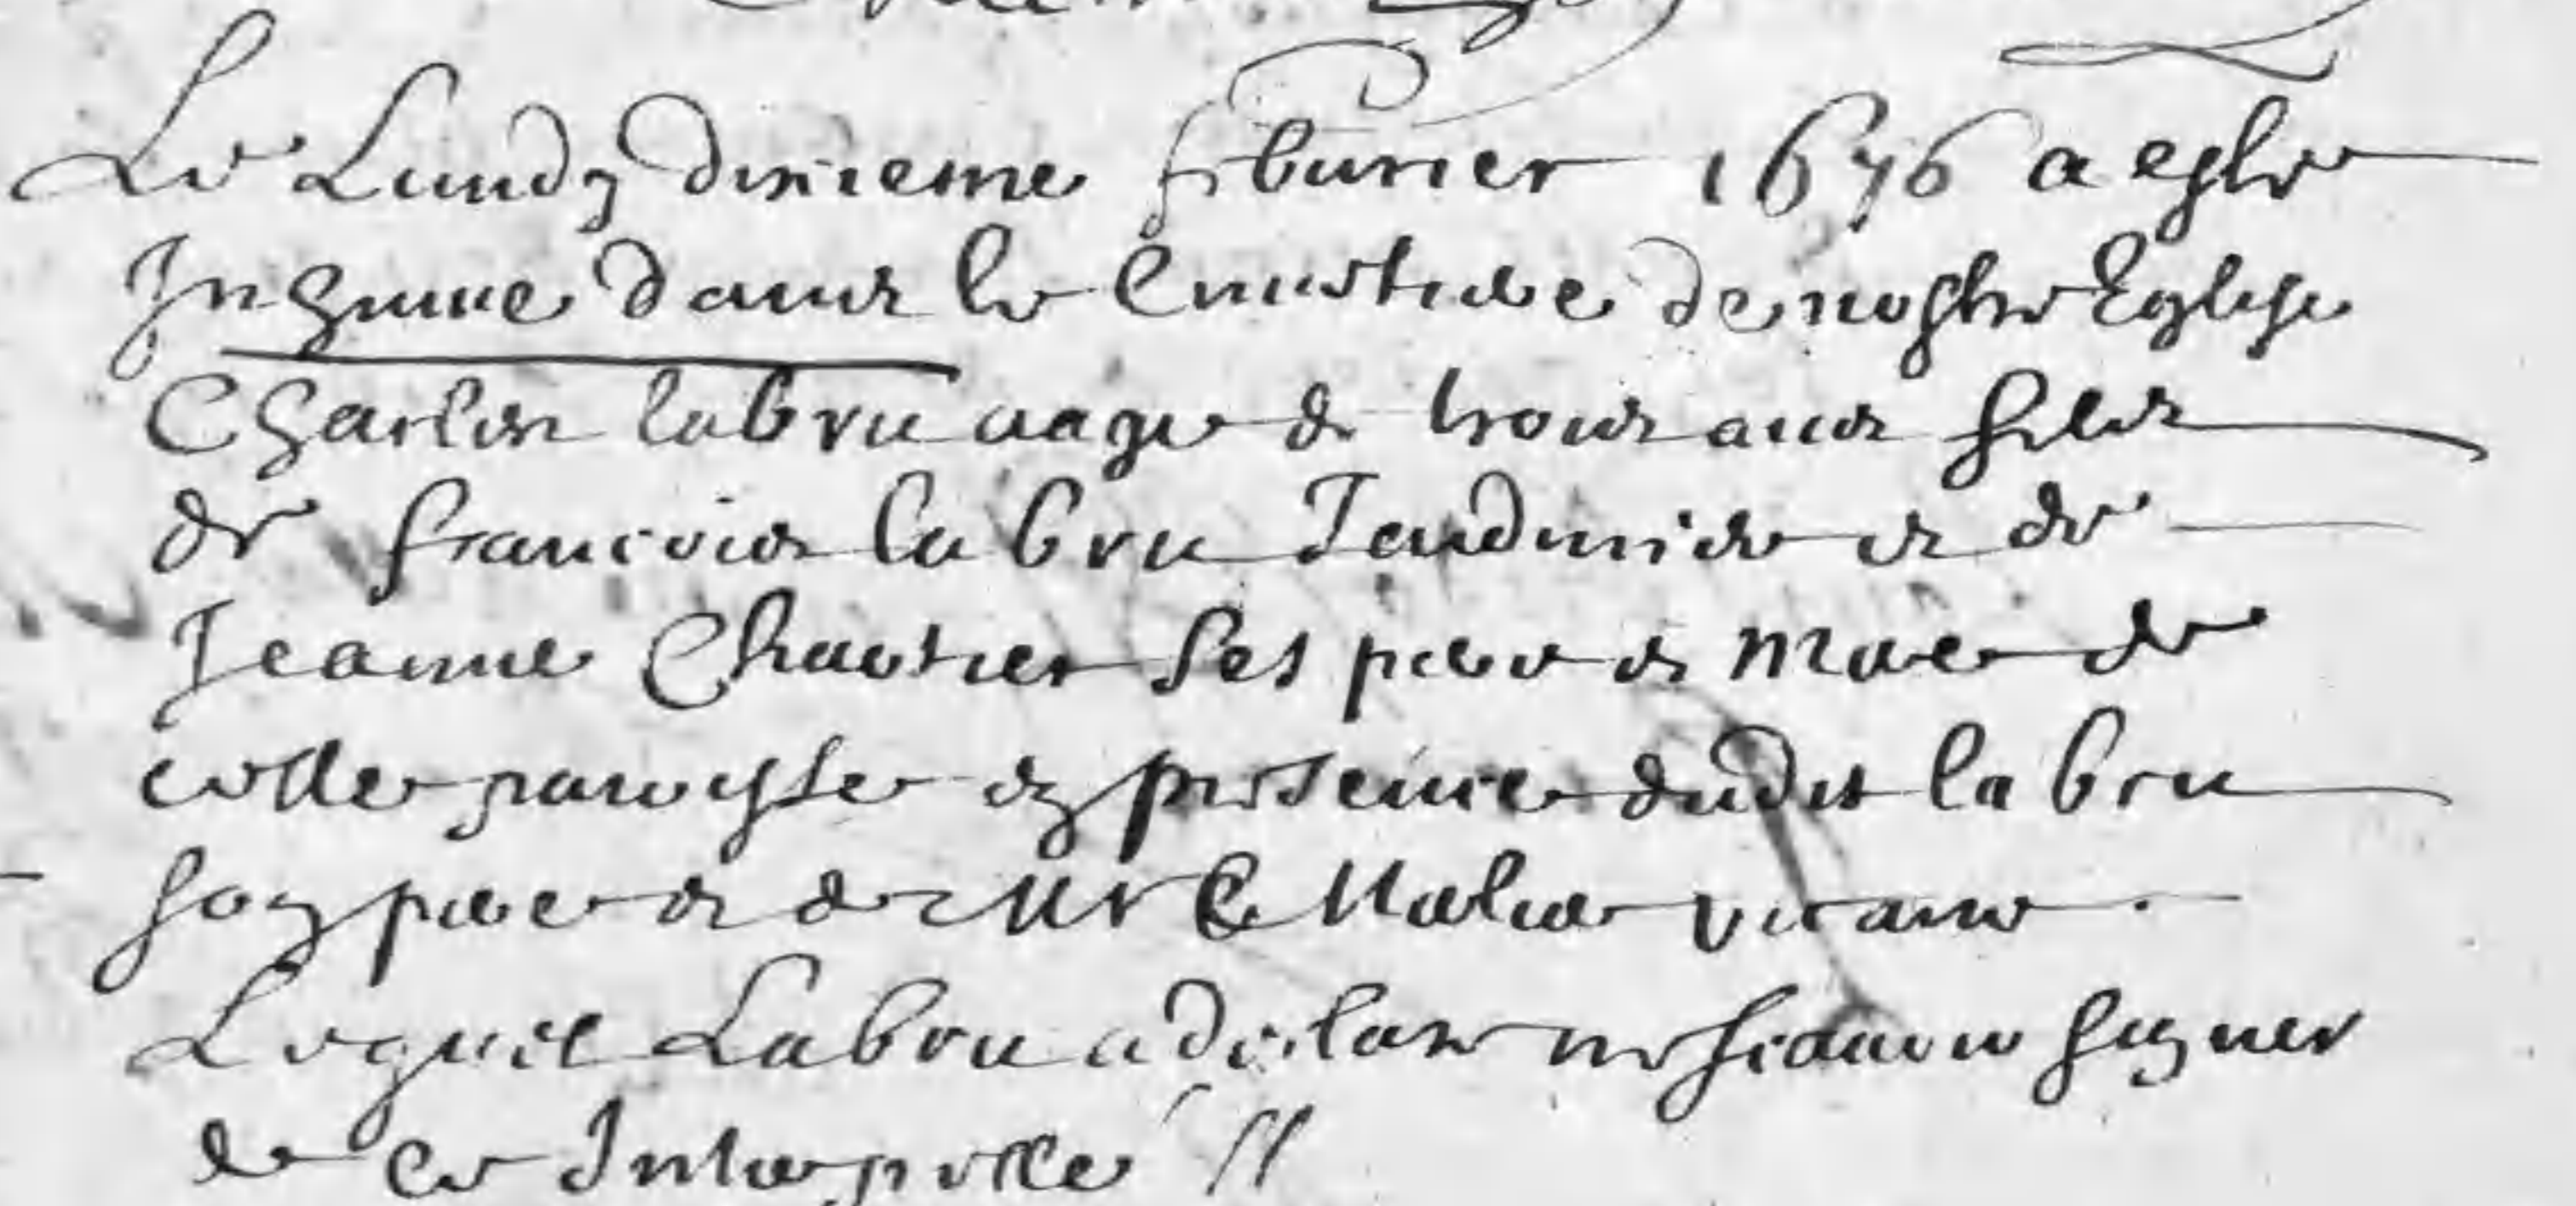 Le Lundy dixieme febvrier 1676 a esté
Inhumé dans le Cimetiere de nostre Eglise
Charles labru aagé de trois ans fils
de francois labru Jardinier et de
Jeanne Chartier Ses pere et Mere de
cette paroisse en presence dudit labru
son pere et de Mr vicaire .
Lequel Labru a declaré ne scavoir signer
de ce Interpellé //